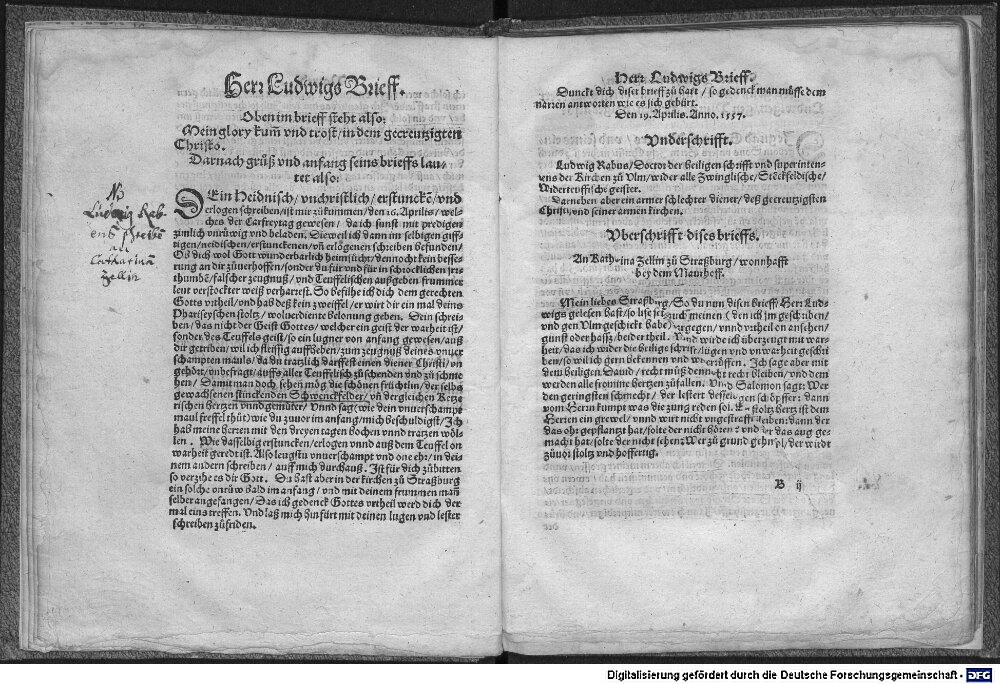 Herr Ludwigs Brieff.
Oben im brieff steht also:
Mein glory kum̃ vnd trost/ in dem gecreutzigten
Christo.
Darnach grůß vnd anfang seins brieffs lau-
tet also:
DEin Heidnisch/ vnchristlich/ erstunckē/ vnd
erlogen schreiben/ ist mir zůkummen/ den 16. Aprilis/ wel-
ches der Carfreytag gewesen/ da ich sunst mit predigen
zimlich vnrüwig vnd beladen. Dieweil ich dann im selbigen giff-
tigen/ neidischen/ erstunckenen/ vñ erlogenen schreiben befunden/
Ob dich wol Gott wunderbarlich heimsůcht/ dennocht kein besse-
rung an dir zůuerhoffen/ sonder du für vnd für in schrocklichen irr-
thumbē/ falscher zeugnuß/ vnd Teuffelischen außgeben frummer
leut verstockter weiß verharrest. So befilhe ich dich dem gerechten
Gotts vrtheil/ vnd hab deß kein zweiffel/ er wirt dir ein mal deins
Phariseyschen stoltz/ wolverdiente belonung geben. Dein schrei-
ben/ das nicht der Geist Gottes/ welcher ein geist der warheit ist/
sonder des Teuffels geist/ so ein lugner von anfang gewesen/ auß
dir getriben/ wil ich fleissig auffheben/ zum zeugnuß deines vnuer
schampten mauls/ da du tratzlich darffest einen diener Christi/ vn
gehört/ vnbefragt/ auffs aller Teufflisch zů schenden vnd zů schme-
hen/ Damit man doch sehen mög die schönen früchtlin/ der selbs
gewachsenen stinckenden Schwenckfelder/ vñ dergleichen Ketze
rischen hertzen vnnd gemüter/ Vnnd sag (wie dein vnuerschampt
maul freffel thůt) wie du zuuor im anfang/ mich beschuldigst/ Ich
hab meine herren mit den dreyen tagen bochen vnnd tratzen wöl-
len. Wie dasselbig erstuncken/ erlogen vnnd auß dem Teuffel on
warheit geredt ist. Also leugstu vnuerschampt vnd one ehr/ in dei-
nem andern schreiben/ auff mich durchauß. Ist für dich zů bitten
so verzihe es dir Gott. Du hast aber in der kirchen zů Straßburg
ein solche vnrůw bald im anfang/ vnd mit deinem frummen mañ
selber angefangen/ Das ich gedenck Gottes vrtheil werd dich der
mal eins treffen. Vnd laß mich hinfürt mit deinen lugen vnd lester
schreiben zůfriden.
NB
Ludwig Rab-
ens schreibē
an
Catharinā
Zellin
Herr Ludwigs Brieff.
Dunckt dich diser brieff zů hart/ so gedenck man müsse dem
narren antworten wie es sich gebürt.
Den 19. Aprilis. Anno. 1557.
Vnderschrifft.
Ludwig Rabus/ Doctor der heiligen schrifft vnd superinten-
dens der Kirchen zů Vlm/ wider alle Zwinglische/ Stēckfeldische/
Widerteuffische geister.
Darneben aber ein armer schlechter diener/ deß gecreutzigten
Christi/ vnd seiner armen kirchen.
Vberschrifft dises brieffs.
An Kath ina Zellin zů Straßburg/ wonnhafft
bey dem Maurhoff.
Mein liebes Straßburg/ So du nun disen brieff/ Herr Lud-
wigs gelesen hast/ so lise jetz auch meinen (den ich jm geschriben/
vnd gen Vlm geschickt habe) gegen/ vnnd vrtheil on ansehen/
gunst oder hassz/ beider theil. Vnd wirde ich überzeugt mit war-
heit/ das ich wider die heilige schrifft/ lügen vnd vnwarheit geschri
ben/ so wil ich gern bekennen vnd widerrüffen. Ich sage aber mit
dem heiligen Dauid/ recht můß dennocht recht bleiben/ vnd dem
werden alle fromme hertzen zůfallen. Vnd Salomon sagt: Wer
den geringsten schmecht/ der lestert desselbigen schöpffer: dann
vom Herrn kumpt was die zung reden sol. E stoltz hertz ist dem
Herren ein grewel/ vnnd wirt nicht vngestrafft bleiben: dann der
das ohr gepflantzt hat/ solte der nicht hören? vnd der das aug ge-
macht hat/ solte der nicht sehen? Wer zů grund gehn sol, der wirdt
zůuor stoltz vnd hoffertig.
B ij
Digitalisierung gefördert durch die Deutsche Forschungsgemeinschaft - DFG